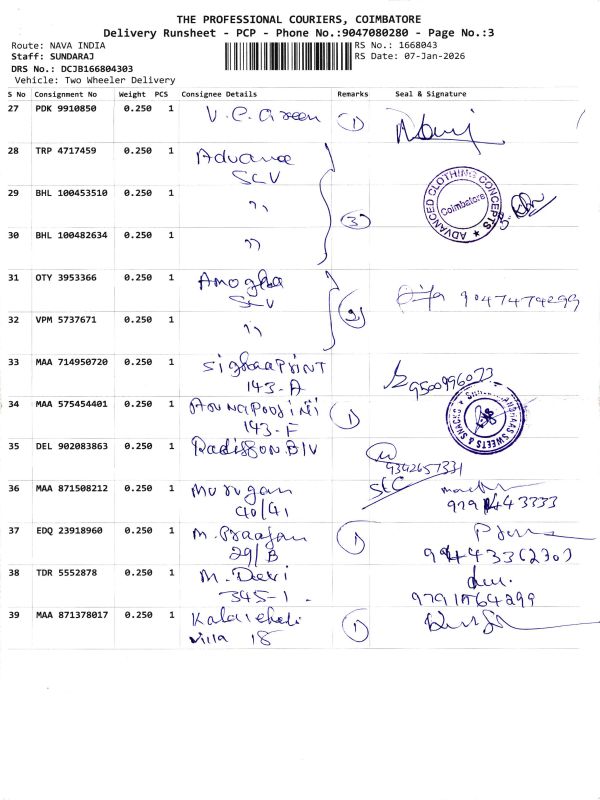 THE PROFESSIONAL COURIERS, COIMBATORE
Delivery Runsheet - PCP - Phone No.:9047080280 - Page No.:3
Route: NAVA INDIA RS No.: 1668043
Staff: SUNDARAJ RS Date: 07-Jan-2026
DRS No.: DCJB166804303
Vehicle: Two Wheeler Delivery
S No Consignment No Weight PCS Consignee Details Remarks Seal & Signature
27 PDK 9910850 0.250 1 V.C. Green 1
28 TRP 4717459 0.250 1 Advance
SCV
29 BHL 100453510 0.250 1 " 3
ADVANCED CLOTHING CONCEPTS
Coimbatore
30 BHL 100482634 0.250 1 "
31 OTY 3953366 0.250 1 Amogha
SCV 2 9047474299
32 VPM 5737671 0.250 1 "
33 MAA 714950720 0.250 1 PRINT
143-A 9500996073
34 MAA 575454401 0.250 1 1
143-F
SWEETS & SNACKS
35 DEL 902083863 0.250 1 Radisson BLU
9342657331
SEC
36 MAA 871508212 0.250 1 Murugan
40/41
37 EDQ 23918960 0.250 1 M. 1
29/B
38 TDR 5552878 0.250 1 M. Devi
345-1
39 MAA 871378017 0.250 1 1
Villa 18